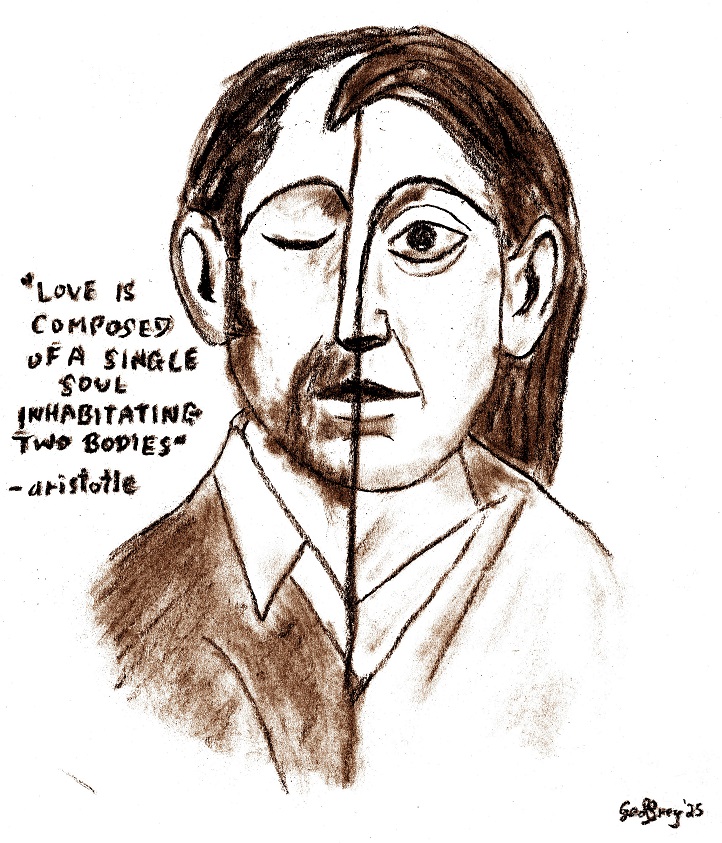 "LOVE IS
COMPOSED
OF A SINGLE
SOUL
INHABITATING
TWO BODIES"
-aristotle
Geoffrey '25